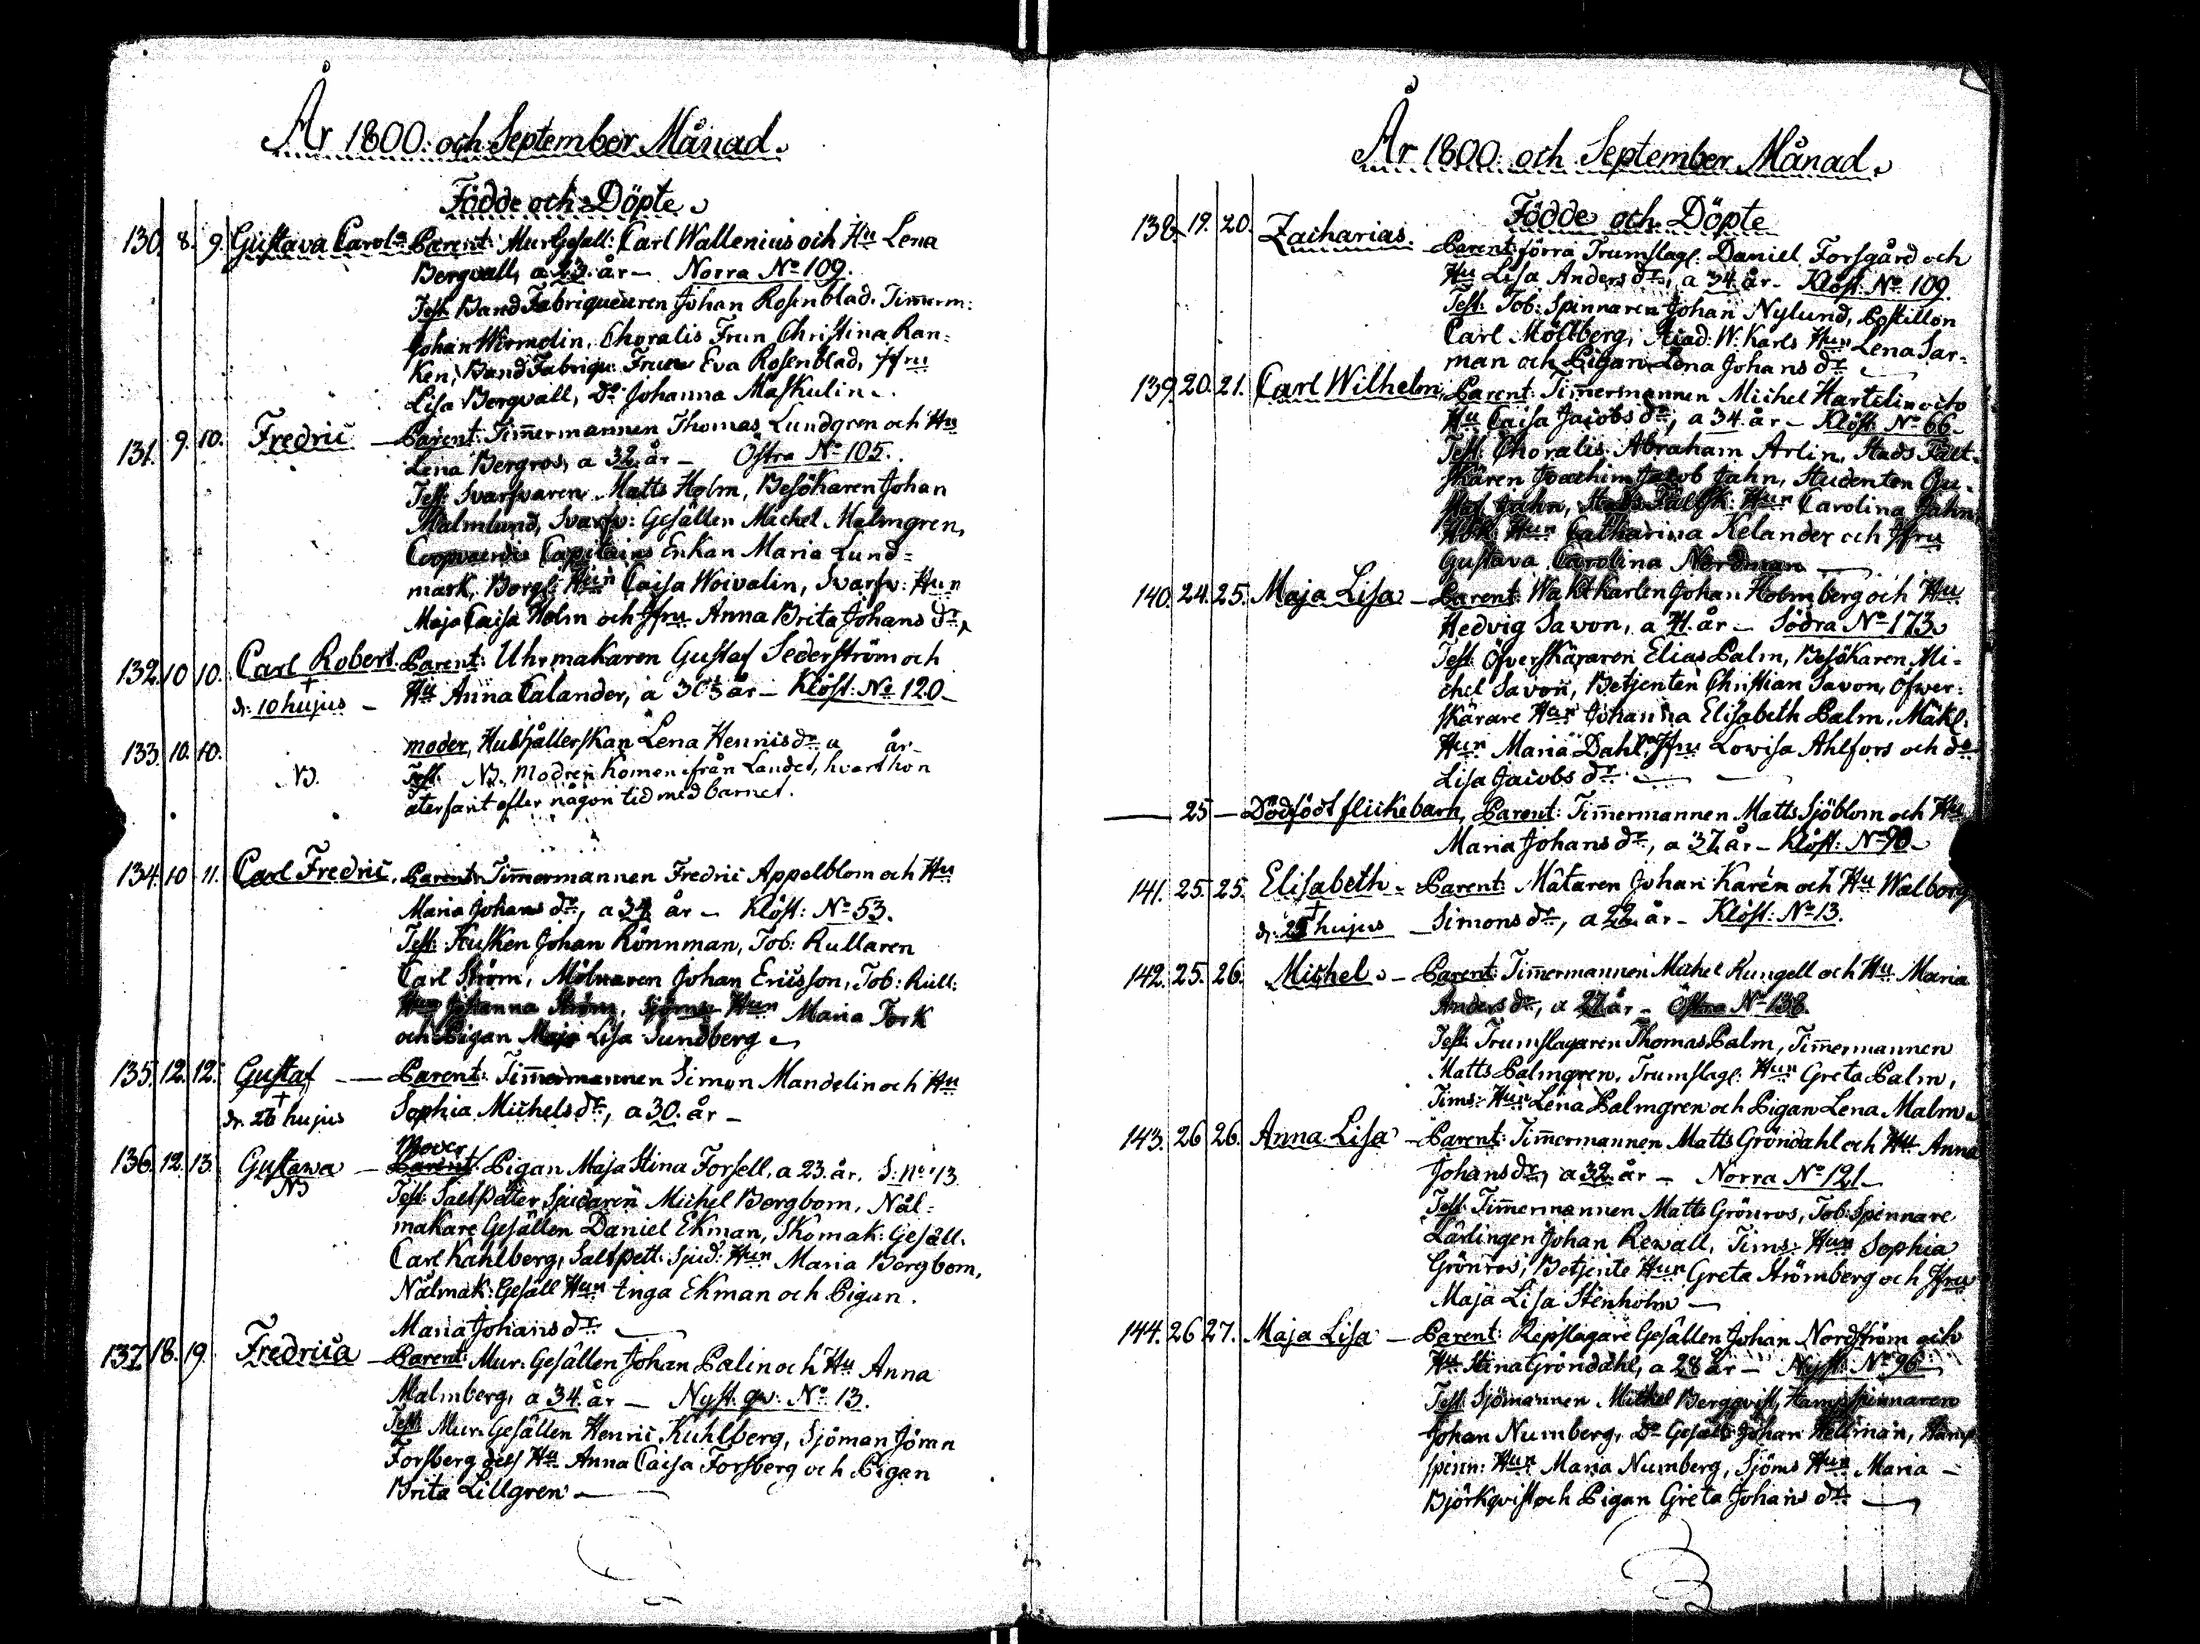 År 1800: och September Månad.
Födde och Döpte
130. 8. 9. Gustava Carola Parent: MurGesall: Carl Wallenius och Hu Lena
Bergvall, a 23. år — Norra No 109.
Test: BandFabriqueuren Johan Rosenblad. Timmerm:
Johan Wirmelin, Choralis Frun Christina Ran-
ken, BandFabriqu: Fruen Eva Rosenblad, Jfru
Lisa Bergvall, Do Johanna Maskulin.
131. 9. 10. Fredric — Parent: Timmermannen Thomas Lundgren och Hu
Lena Bergros, a 32. år — Östra No 105.
Test: Svarfvaren Matts Holm, Besökaren Johan
Malmlund, Svarfv: Gesällen Michel Malmgren,
Coopvaerdie Capitains Enkan Maria Lund-
mark, Borgl: Hun Caisa Woivalin, Svarfv: Hun
Maja Caisa Holm och Jfru Anna Brita Johans dr,
132. 10 10. Carl Robert. Parent: Uhrmakaren Gustaf Sederström och
† d: 10 hujus — Hu Anna Calander, a 30 ½ år — Klöst: No 120 —
133. 10. 10. moder, Hushållerskan Lena Hennis dr a år —
NB. Test: NB. Modren Komen ifrån Landet, hvart hon
återfarit efter någon tid med barnet.
134. 10 11. Carl Fredric. Parent: Timmermannen Fredric Appelblom och Hu
Maria Johans dr, a 34 år — Klöst: No 53.
Test: Kusken Johan Rönnman, Tob: Rullaren
Carl Ström, Mölnaren Johan Ericsson, Tob: Rull:
Hun Johanna Ström, Sjöms: Hun Maria Tork
och Pigan Maja Lisa Sundberg
135. 12. 12. Gustaf — Parent: Timmermannen Simon Mandelin och Hu
† d: 26 hujus Sophia Michels dr, a 30. år —
Moder
136. 12. 13. Gustawa — Parent: Pigan Maja Stina Forsell, a 23. år. S: No 43
NB Test: Saltpäter Sjudaren Michel Bergbom, Nål-
makare Gesällen Daniel Ekman, Skomak: Gesäll.
Carl Kahlberg, Saltpett: Sjud: Hun Maria Bergbom,
Nålmak: Gesäll Hun Inga Ekman och Pigan.
Maria Johans dr
137. 18. 19. Fredrica — Parent: Mur: Gesällen Johan Palin och Hu Anna
Malmberg, a 34. år — Nyst. qv: No 13.
Test: Mur: Gesällen Henric Kuhlberg, Sjöman Jöran
Forsberg dess Hu Anna Caisa Forsberg och Pigan
Brita Lillgren —
År 1800: och September Månad.
Födde och Döpte
138. 19. 20. Zacharias. Parent: förra Trumslag: Daniel Forsgård och
Hu Lisa Anders dr, a 34 år — Klöst: No 109.
Test: Tob: Spinnaren Johan Nylund, Postillon
Carl Möllberg, Acad: W: Karls Hun Lena Sar-
man och Pigan Lena Johans dr
139. 20. 21. Carl Wilhelm, Parent: Timmermannen Michel Hartelin och
Hu Caisa Jacobs dr, a 34. år — Klöst: No 66 —
Test: Choralis Abraham Arlin, Stads Fält-
skären Joachim Jacob Jahn, Studenten Gu-
staf Jahn, Stads Fältsk: Hun Carolina Jahn,
Hun Catharina Kelander och Jfru
Gustava Carolina Nordman —
140. 24. 25. Maja Lisa — Parent: Waktkarlen Johan Holmberg och Hu
Hedvig Savon, a 41. år — Södra No 173
Test: Öfverskäraren Elias Palm, Besökaren Mi-
chel Savon, Betjenten Christian Savon, Öfwer-
skärare Hun Johanna Elisabeth Palm, Mäkl:
Hun Maria Dahl, Jfru Lowisa Ahlfors och do
Lisa Jacobs dr
— 25 — Dödfödt flickebarn, Parent: Timmermannen Matts Sjöblom och Hu
Maria Johans dr, a 37 år — Klöst: No 90 —
141. 25. 25. Elisabeth — Parent: Mätaren Johan Karén och Hu Walborg
† d: 25 hujus — Simons dr, a 22. år — Klöst: No 13.
142. 25. 26. Michel — Parent: Timmermannen Michel Kungell och Hu Maria
Anders dr, a 27 år — Östra No 138.
Test: Trumslagaren Thomas Palm, Timmermannen
Matts Palmgren, Trumslag: Hun Greta Palm,
Tims: Hun Lena Palmgren och Pigan Lena Malm
143. 26 26. Anna Lisa — Parent: Timmermannen Matts Gröndahl och Hu Anna
Johans dr, a 32 år — Norra No 121 —
Test: Timmermannen Matts Grönros, Tob: Spinnare
Lärlingen Johan Rewall, Tims: Hun Sophia
Grönros, Betjente Hun Greta Strömberg och Jfru
Maja Lisa Stenholm —
144. 26 27. Maja Lisa — Parent: Repslagare Gesällen Johan Nordström och
Hu Stina Gröndahl, a 28 år — Nyst: No 96 —
Test: Sjömannen Michel Bergqvist, Hampspinnaren
Johan Numberg, Do Gesäll: Johan Hellman, Hamp
spinn: Hun Maria Numberg, Sjöms Hun Maria —
Björkqvist och Pigan Greta Johans dr —